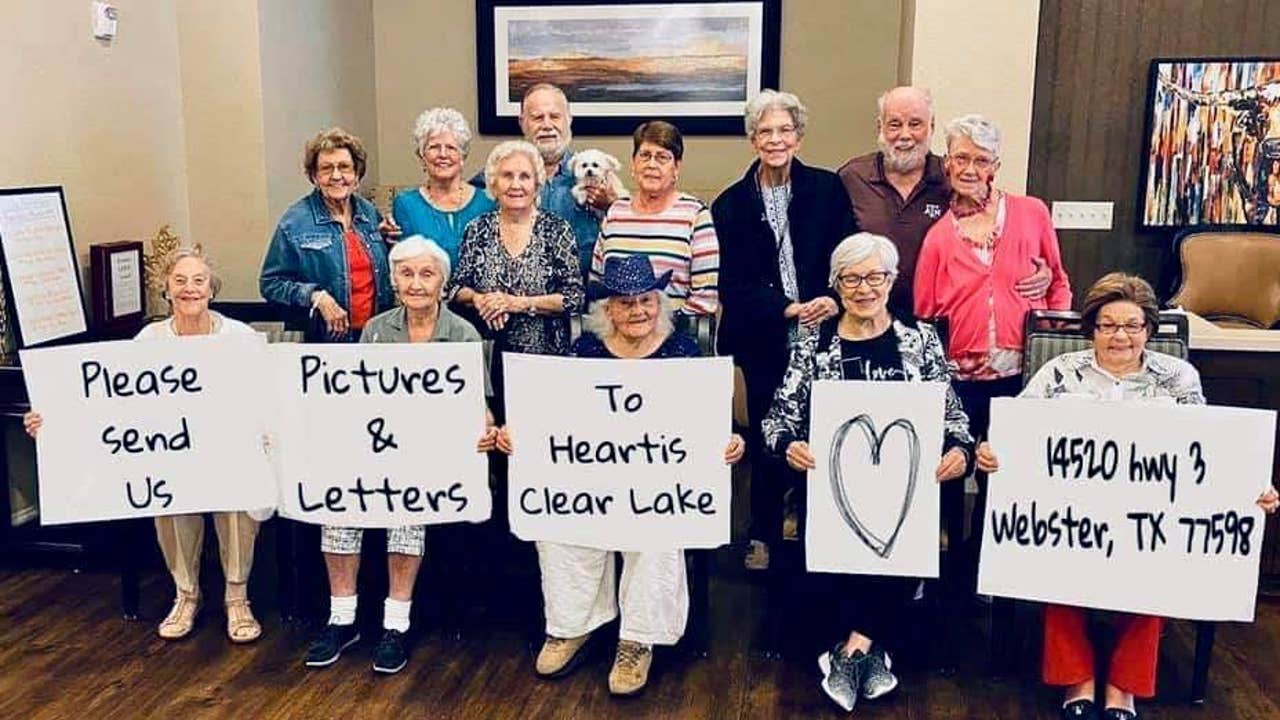 Please
send
Us
Pictures
&
Letters
To
Heartis
Clear Lake
love
14520 hwy 3
Webster, TX 77598